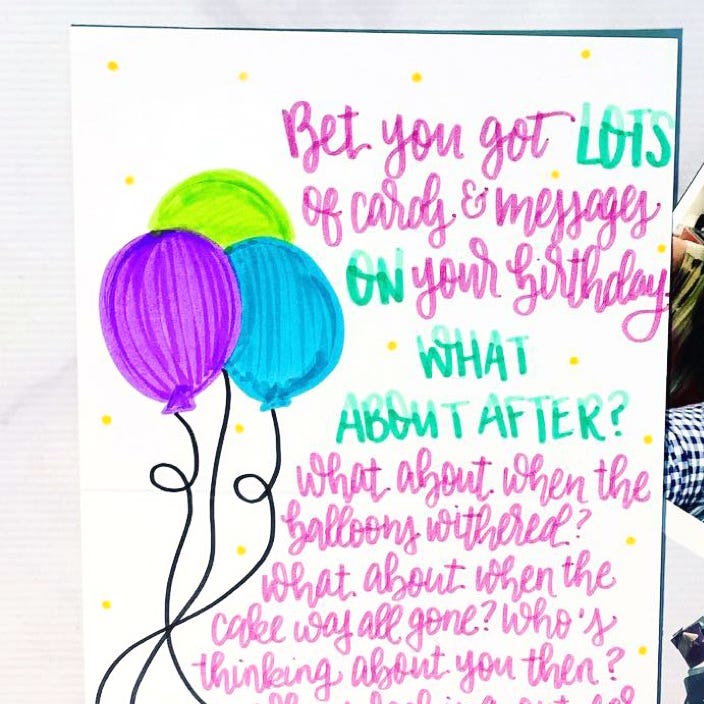 Bet you got LOTS
of cards & messages
ON your birthday
WHAT
ABOUT AFTER?
what about when the
balloons withered?
what about when the
cake was all gone? who's
thinking about you then?